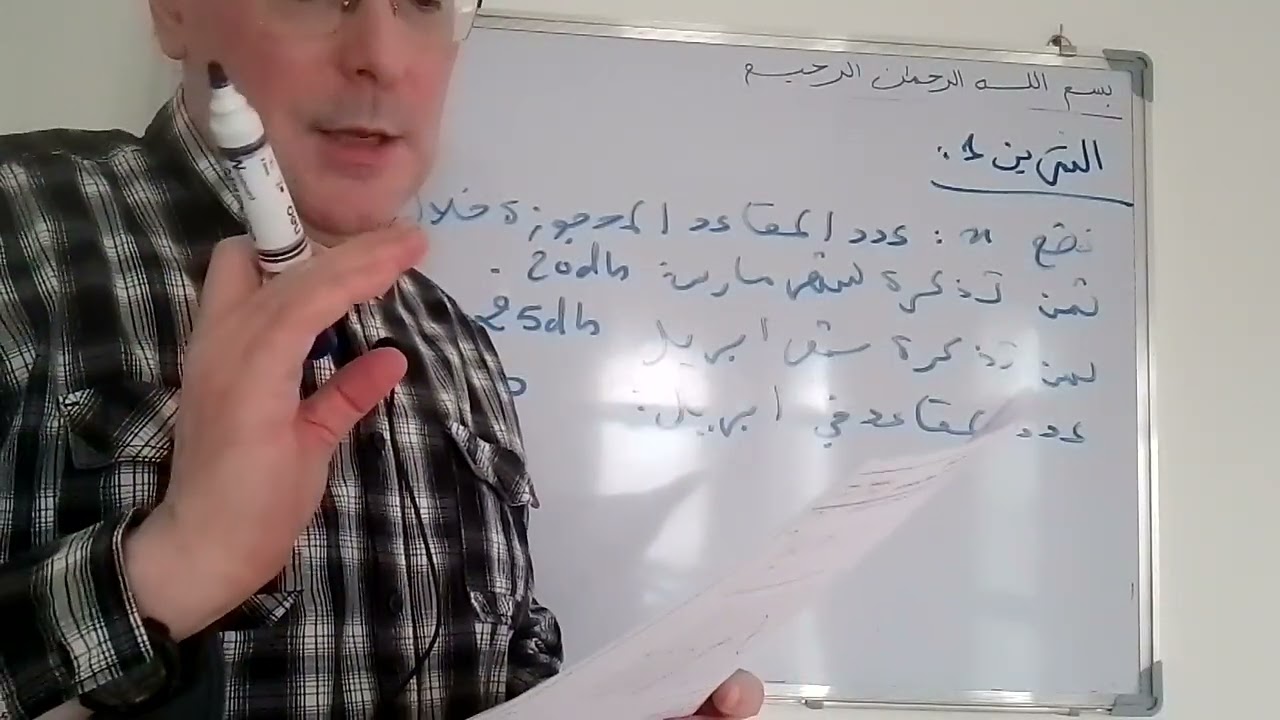 بسم الله الرحمان الرحيم
التمرين 1:
نضع x: عدد المقاعد المحجوزة خلال
ثمن تذكرة شهر مارس: 20dh.
ثمن تذكرة شهر ابريل 25dh
عدد المقاعد في ابريل: